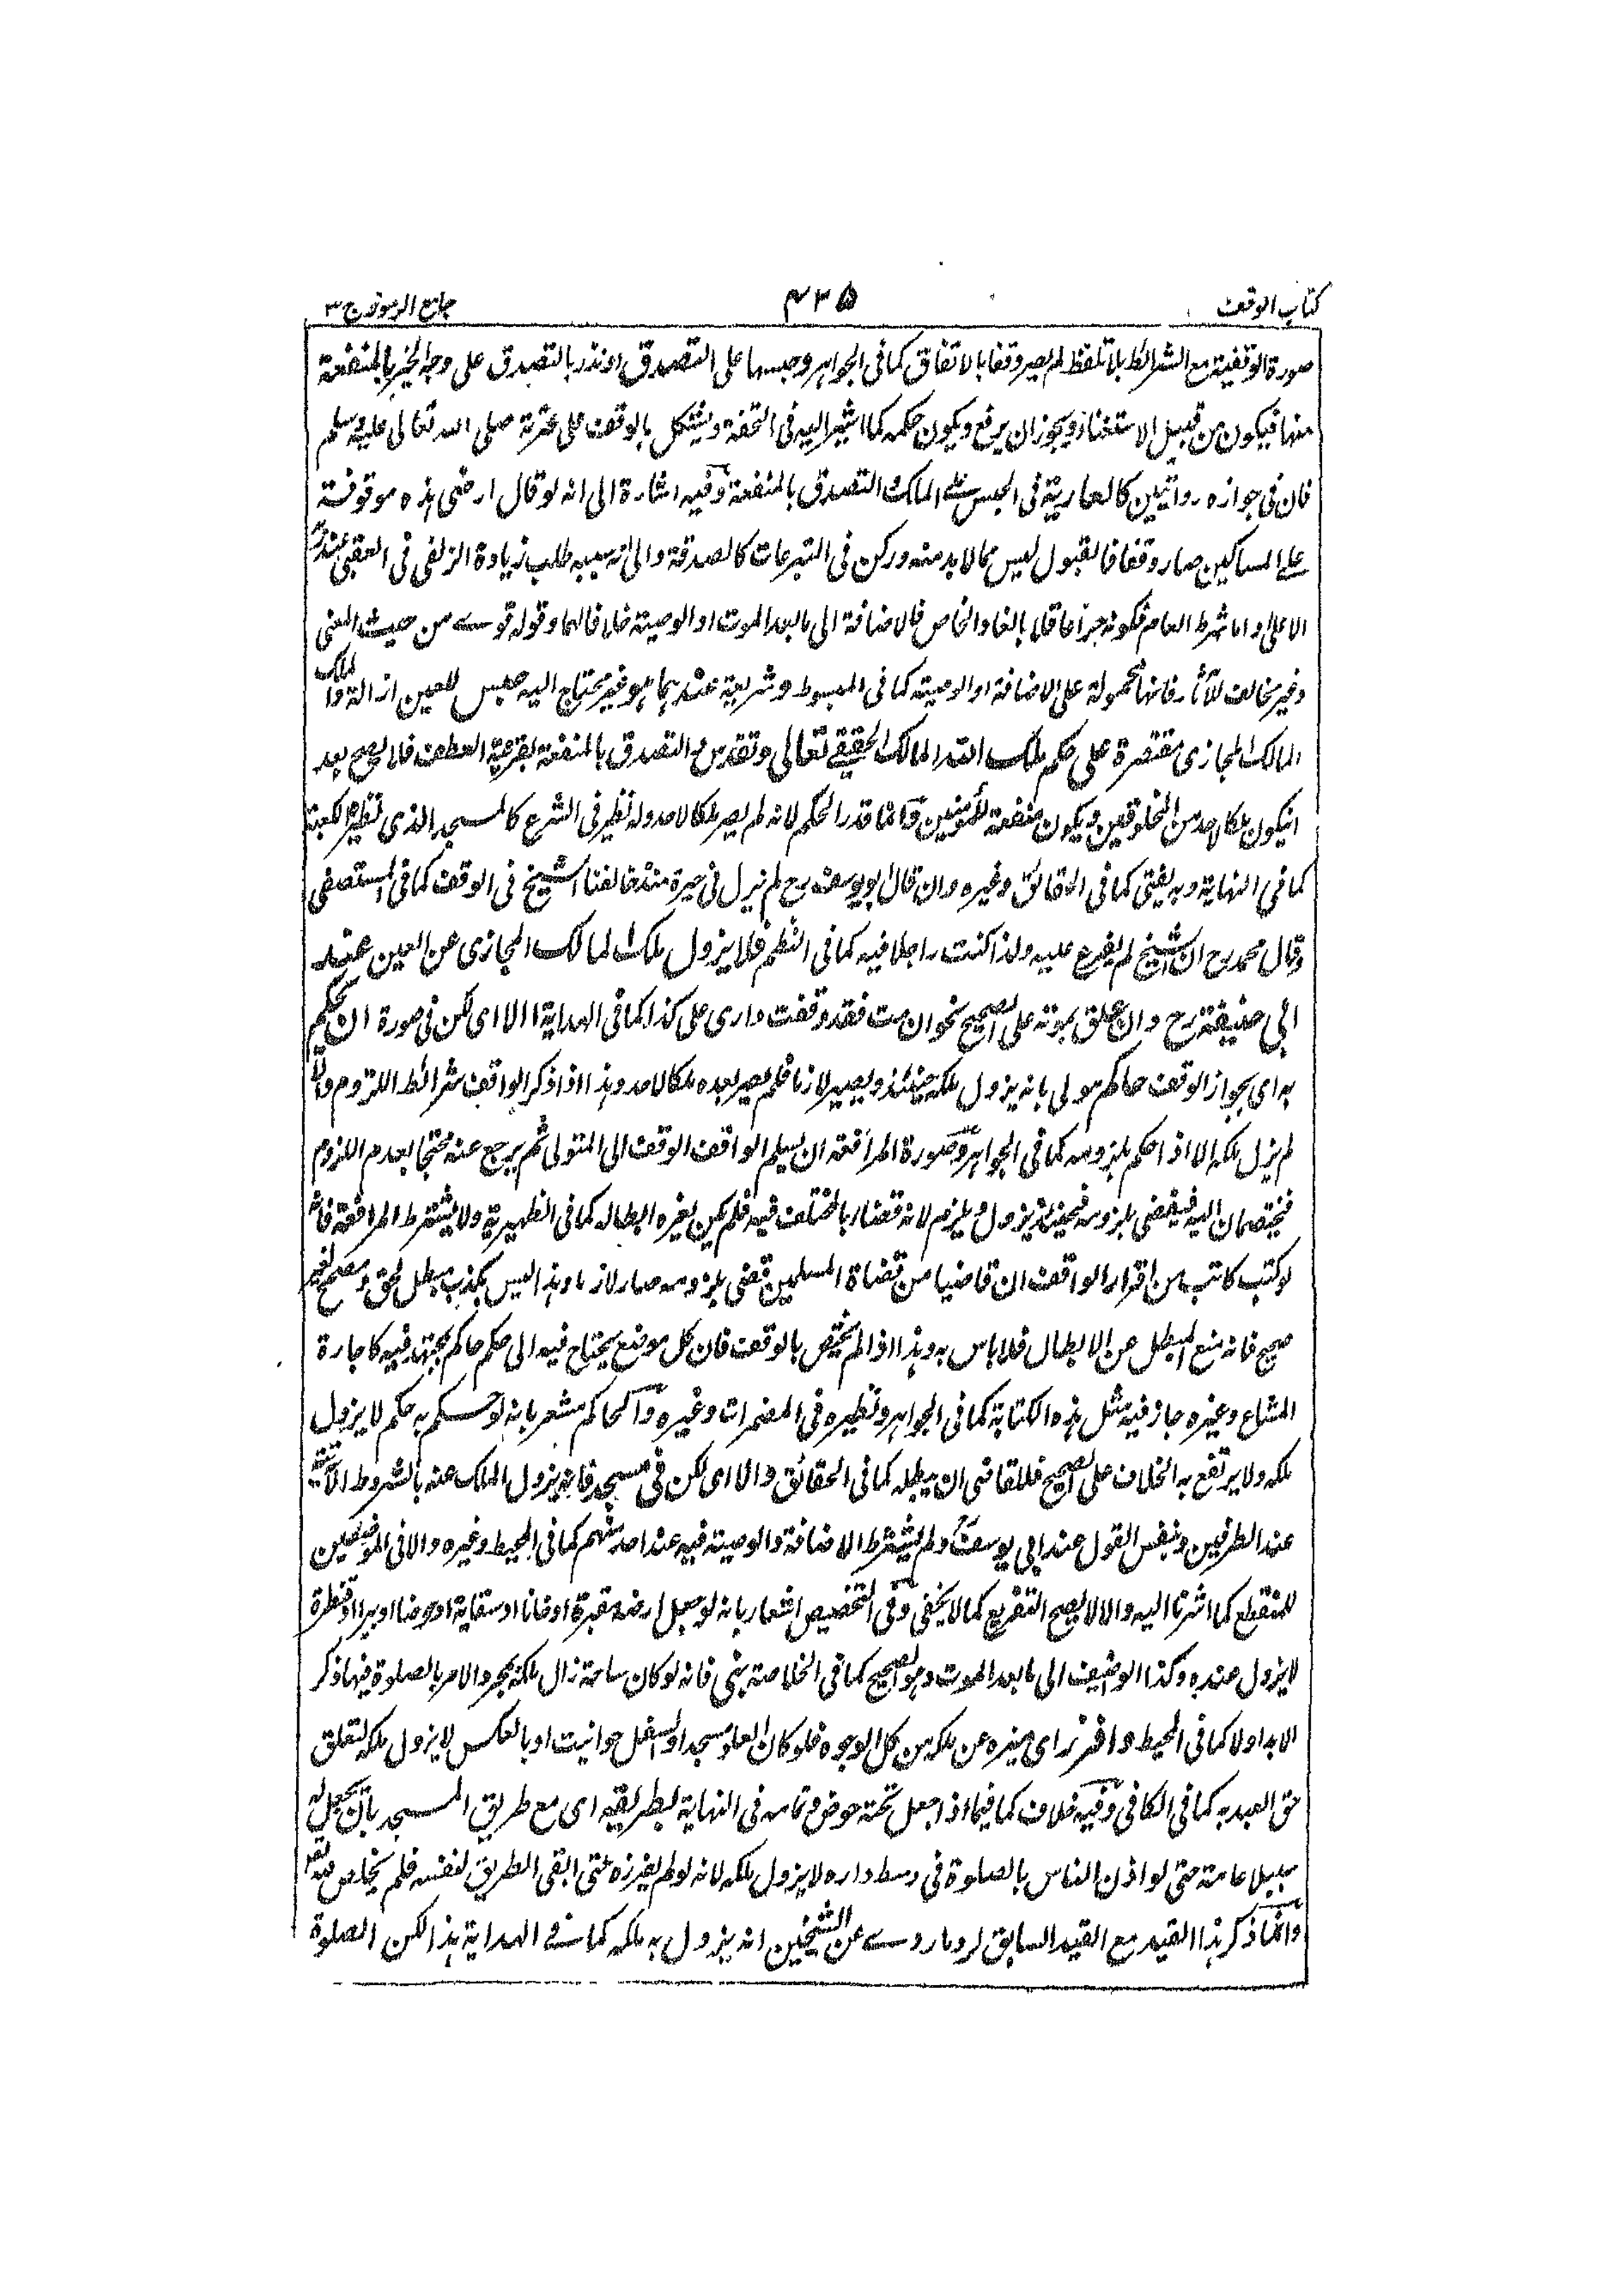 كتاب الوقف
۴۳۵
جامع الرموز ج ۳
صورة الوقفية مع الشرائط بلا تلفظ لم يصر وقفا بالاتفاق كما فى الجواهر وحبسها على التصدق او نذر بالتصدق على وجه الخير بالمنفعة
منها فيكون من قبيل الاستغناء ويجوز ان يرفع ويكون حكمه كما اشير اليه فى التحفة ويشكل بالوقف على عترته صلى الله تعالى عليه وسلم
فان فى جوازه روايتين كالعارية فى الحبس على الملك التصدق بالمنفعة وفيه اشارة الى انه لو قال ارضى هذه موقوفة
على المساكين صار وقفا فالقبول ليس مما لا بد منه وركن فى التبرعات كالصدقة والى انه سببه طلب زيادة الزلفى فى العقبى عند
الاعلى واما شرط العام فكونه حرا عاقلا بالغا والخاص فالاضافة الى ما بعد الموت او الوصية خلافا لهما وقوله قوى من حيث المعنى
وغير مخالف للآثار فانها محمولة على الاضافة او الوصية كما فى المبسوط وشريعة عندهما هو غير محتاج اليه حبس للعين ازالة والملك
المالك المجازى مقتصرة على حكم ملك الله المالك الحقيقى تعالى وتقدس والتصدق بالمنفعة بقرينة العطف فلا يصح بعد
ان يكون ملكا لاحد من المخلوقين ويكون منفعة للمؤمنين وانما قدر الحكم لانه لم يصر ملكا لاحد وله نظير فى الشرع كالمسجد الذى نظيره الكعبة
كما فى النهاية وبه يفتى كما فى الدقائق وغيره وان قال ابو يوسف رح لم نزل فى حيرة منذ خالفنا الشيخ فى الوقف كما فى المستصفى
وقال محمد رح ان الشيخ لم يفرع عليه ولذا كنت راجلا فيه كما فى النظم فلا يزول ملك المالك المجازى عن العين عند
ابى حنيفة رح وان علق بموته على الصحيح نحو ان مت فقد وقفت دارى على كذا كما فى الهداية الا اى لكن فى صورة ان يحكم
به اى بجواز الوقف حاكم مولى بانه يزول ملكه حينئذ ويصير لازما فلم يصر بعده ملكا لاحد وهذا اذا ذكر الواقف شرائط اللزوم والا
لم يزل ملكه الا اذا حكم بلزومه كما فى الجواهر وصورة المرافعة ان يسلم الواقف الوقف الى المتولى ثم يرجع عنه محتجا بعدم اللزوم
فيختصمان اليه فيقضى بلزومه فحينئذ يزول ويلزم لانه قضاء بالمختلف فيه فلم يكن لغيره ابطاله كما فى الظهيرية ولا يشترط المرافعة فانه
لو كتب كاتب من اقرار الواقف ان قاضيا من قضاة المسلمين قضى بلزومه صار لازما وهذا ليس بكذب مبطل لحق ومصحح لغير
صحيح فانه منع المبطل عن الابطال فلا باس به وهذا اذا لم يختص بالوقف فان كل موضع يحتاج فيه الى حكم حاكم مجتهد فيه كاجارة
المشاع وغيره جاز فيه مثل هذه الكتابة كما فى الجواهر ونظيره فى المضمرات وغيره والحاكم مشعر بانه لو حكم به حكم لا يزول
ملكه ولا يرتفع به الخلاف على الصحيح فللقاضى ان يبطله كما فى الحقائق والا اى لكن فى مسجد فانه يزول الملك عنه بالشروط الآتية
عند الطرفين وبنفس القول عند ابى يوسف ولم يشترط الاضافة والوصية فيه عند احد منهم كما فى المحيط وغيره والا فى الموضعين
للمنقطع كما اشرنا اليه والا لا يصح التفريع كما لا يخفى وفى التخصيص اشعار بانه لو جعل ارضه مقبرة او خانا او سقاية او حوضا او بيرا او قنطرة
لا يزول عنده وكذا الوضيف الى ما بعد الموت وهو الصحيح كما فى الخلاصة بنى فانه لو كان ساحة زال ملكه بمجرد الامر بالصلوة فيها ذكر
الابد اولا كما فى المحيط وافرز اى ميزه عن ملكه من كل الوجوه فلو كان العلو مسجدا والسفل حوانيت او بالعكس لا يزول ملكه لتعلق
حق العبد به كما فى الكافى وفيه خلاف كما فيما اذا جعل تحته حوض وتمامه فى النهاية بطريقه اى مع طريق المسجد بان يجعل له
سبيلا عامة حتى لو اذن الناس بالصلوة فى وسط داره لا يزول ملكه لانه لو لم يفرزه حتى ابقى الطريق لنفسه فلم يخلص لله
وانما ذكر هذا القيد مع القيد السابق لرد ما روى عن الشيخين انه يزول به ملكه كما فى الهداية هذا لكن الصلوة